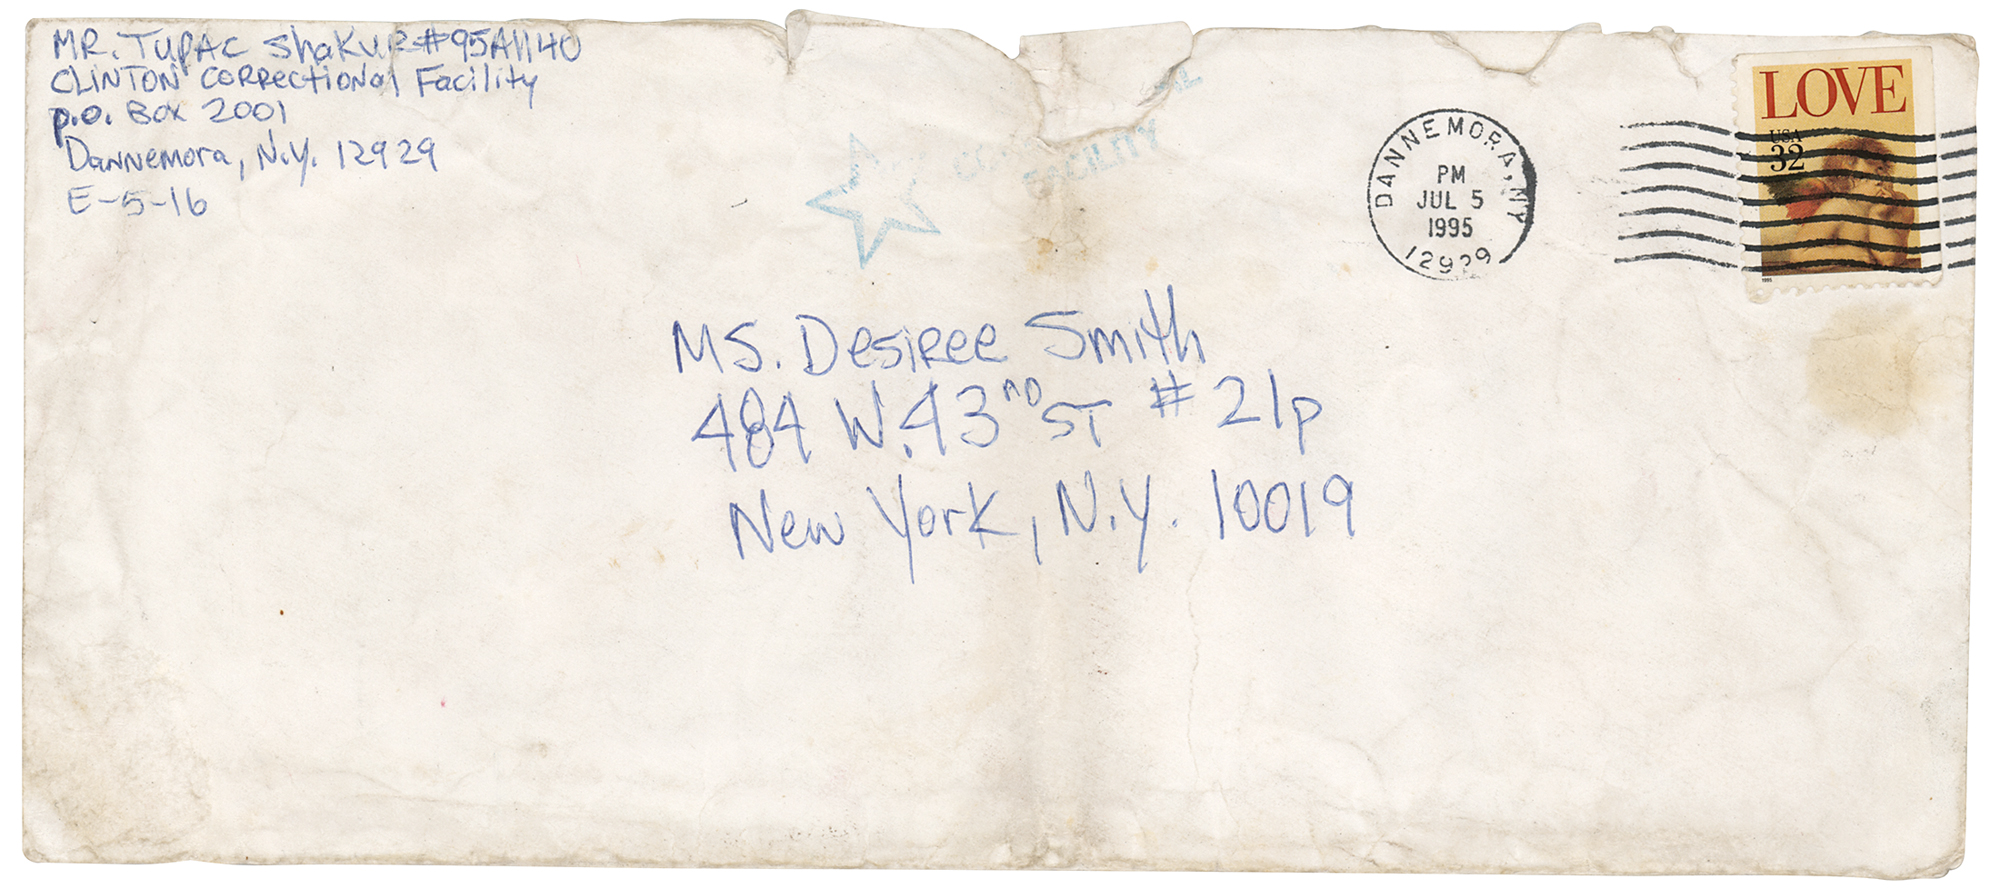 MR. TUPAC ShaKUR #95A1140
CLINTON CORRectional Facility
p.o. Box 2001
Dannemora, N.Y. 12929
E-5-16
FACILITY
DANNEMORA, NY
PM
JUL 5
1995
12929
LOVE
USA
32
MS. Desiree Smith
484 W. 43ND ST # 21p
New York, N.Y. 10019